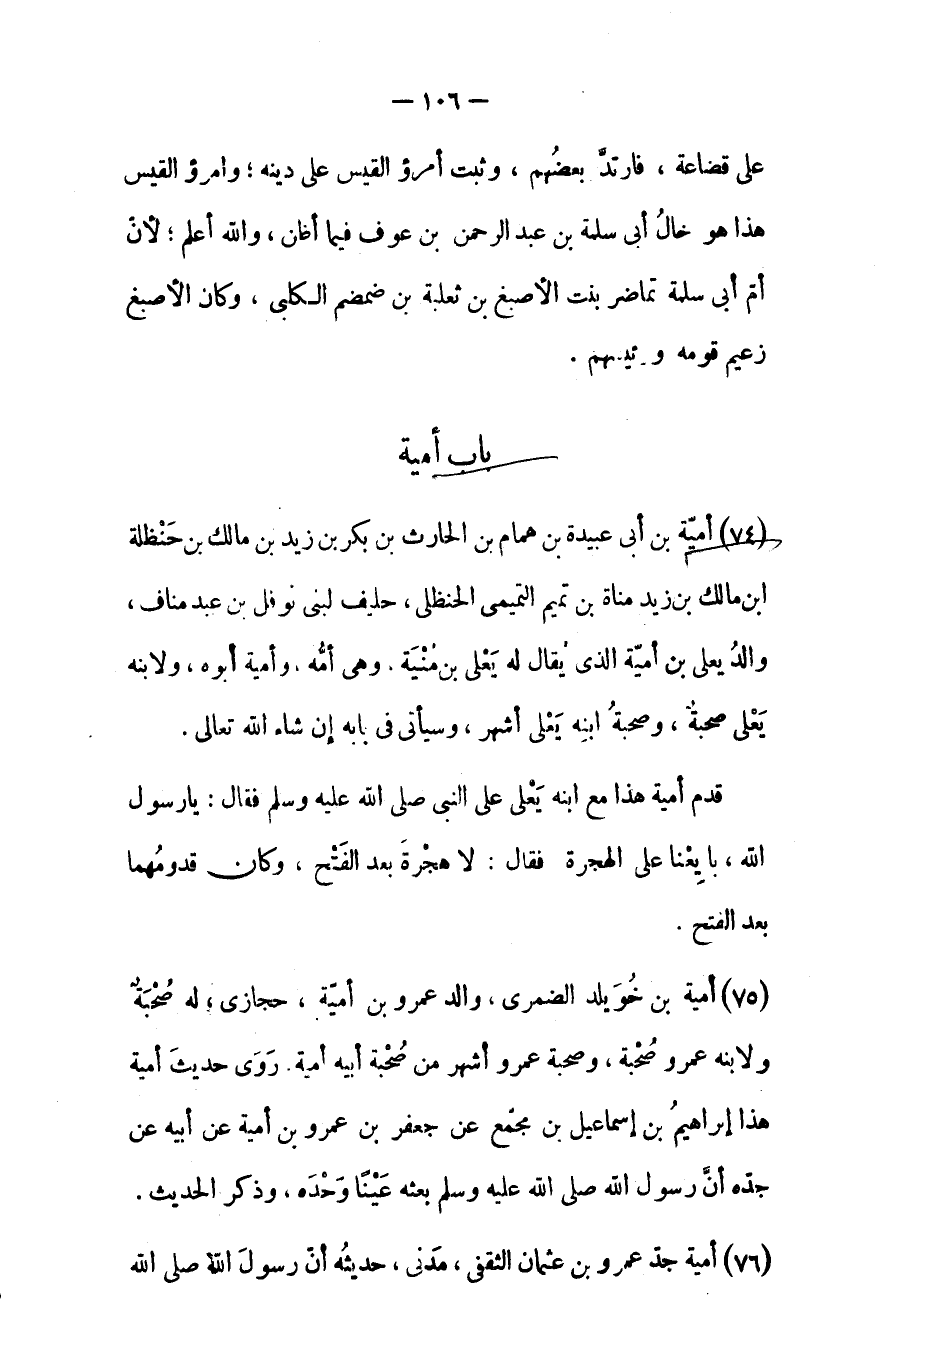 — ١٠٦ —
على قضاعة ، فارتدَّ بعضُهم ، وثبت أمرؤ القيس على دينه ؛ وامرؤ القيس
هذا هو خالُ أبى سلمة بن عبد الرحمن بن عوف فيما أظن ، والله أعلم ؛ لأنّ
أمّ أبى سلمة تماضر بنت الأصبغ بن ثعلبة بن ضمضم الكلبى ، وكان الأصبغ
زعيم قومه ورئيسهم .
باب أمية
(٧٤) أميّة بن أبى عبيدة بن همام بن الحارث بن بكر بن زيد بن مالك بن حَنْظلة
ابن مالك بن زيد مناة بن تميم التميمى الحنظلى ، حليف لبنى نوفل بن عبد مناف ،
والدُ يعلى بن أميّة الذى يُقال له يَعْلى بن مُنْيَة . وهى أمُّه . وأمية أبوه ، ولابنه
يَعْلى صحبةٌ ، وصحبةُ ابنِه يَعْلى أشهر ، وسيأتى فى بابه إن شاء الله تعالى .
قدم أمية هذا مع ابنه يَعْلى على النبى صلى الله عليه وسلم فقال : يارسول
الله ، بايِعْنا على الهجرة فقال : لا هجْرةَ بعد الفَتْح ، وكان قدومُهما
بعد الفتح .
(٧٥) أمية بن خُوَيلد الضمرى ، والد عمرو بن أميّة ، حجازى ، له صُحْبَةٌ
ولابنه عمرو صُحْبة ، وصحبة عمرو أشهر من صُحْبة أبيه أمية . رَوَى حديثَ أمية
هذا إبراهيمُ بن إسماعيل بن مجمّع عن جعفر بن عمرو بن أمية عن أبيه عن
جدّه أنَّ رسول الله صلى الله عليه وسلم بعثه عَيْنًا وَحْدَه ، وذكر الحديث .
(٧٦) أمية جدّ عمرو بن عثمان الثقفى ، مَدَنى ، حديثُه أنّ رسولَ اللهِ صلى الله